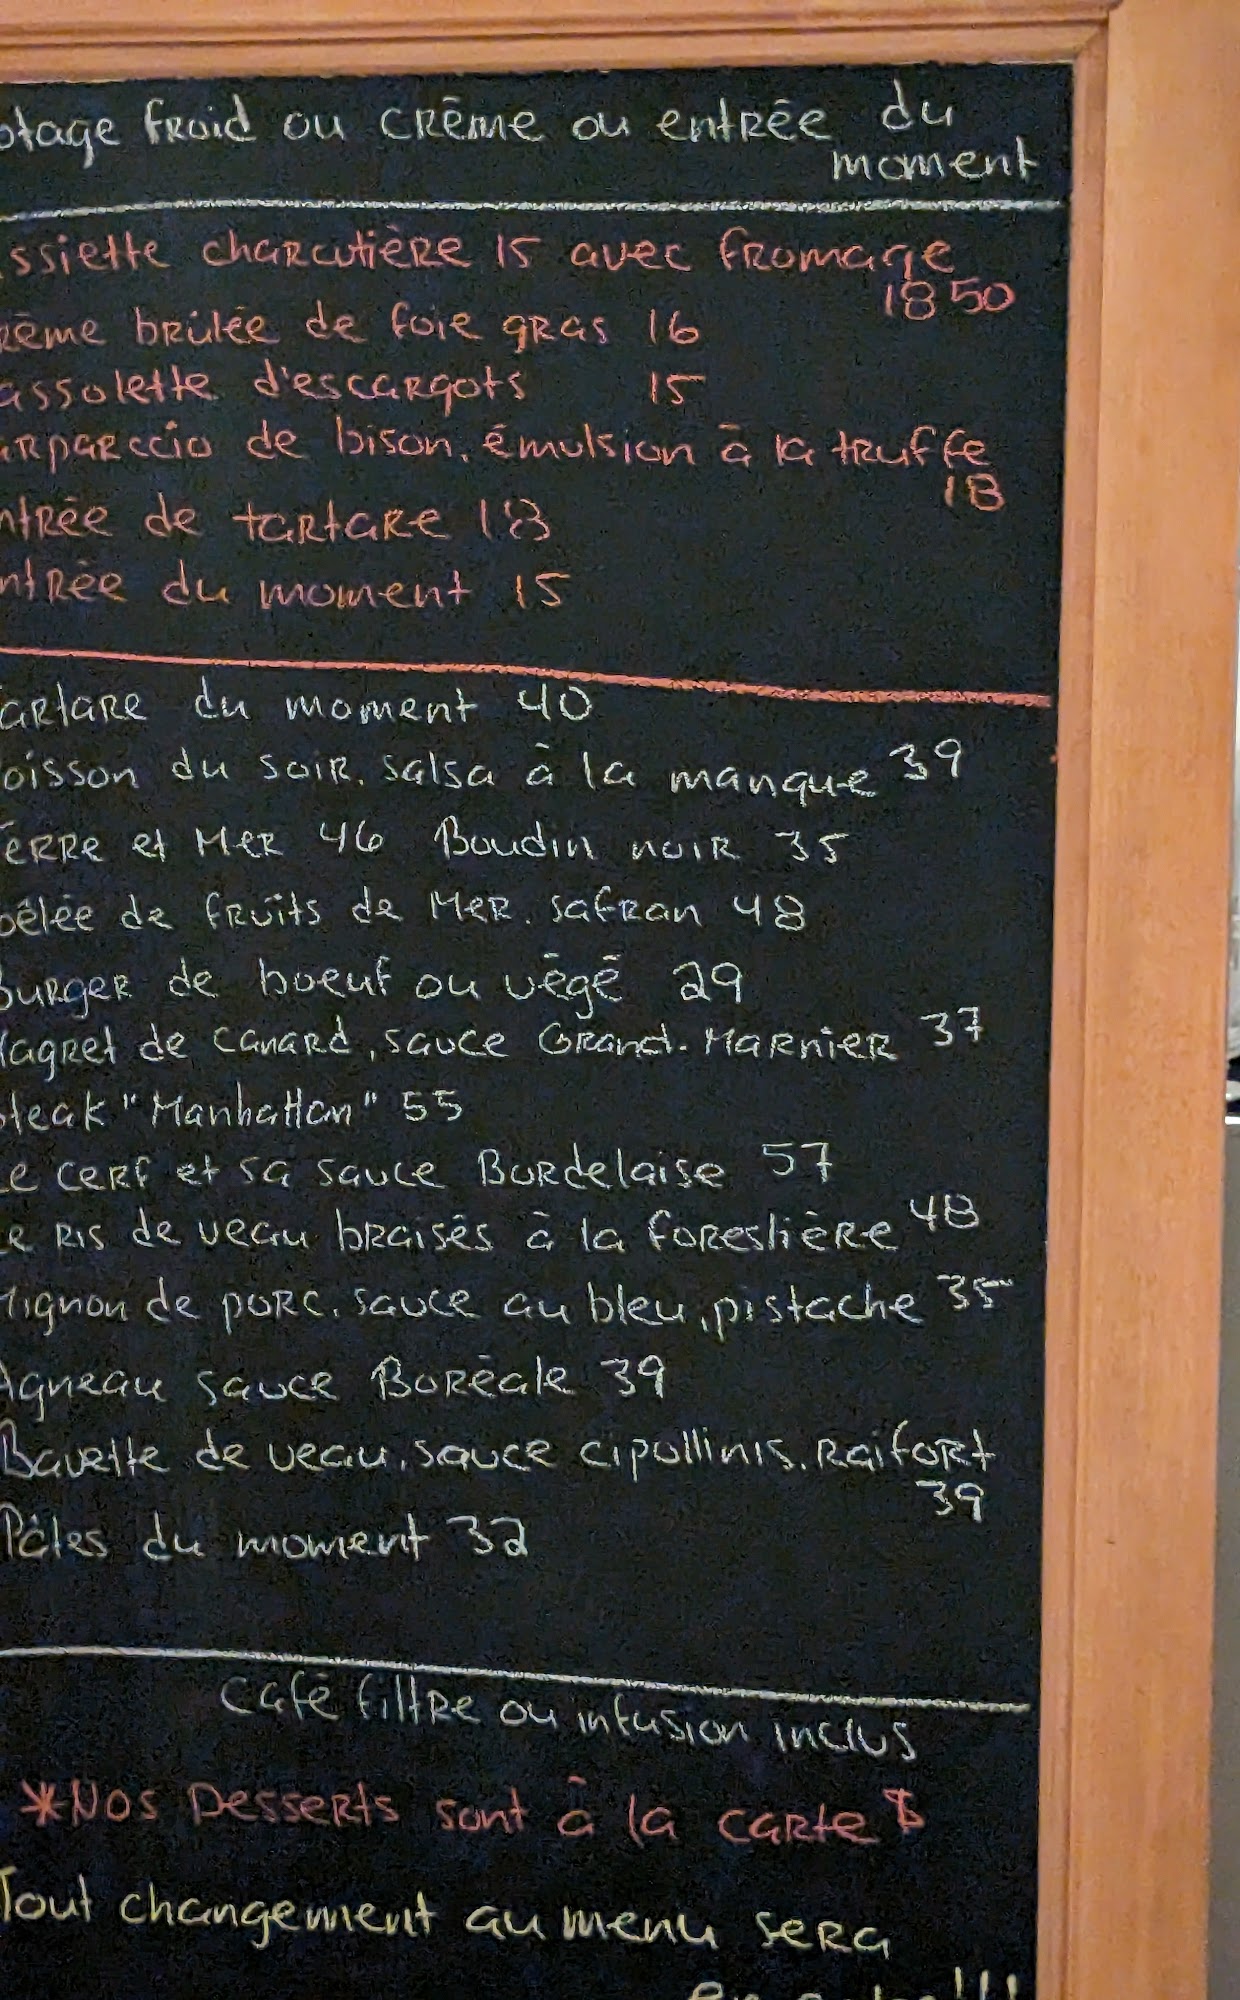 otage froid ou crème ou entrée du
moment
ssiette charcutière 15 avec fromage
18 50
rème brûlée de foie gras 16
assolette d'escargots 15
arparccio de bison, émulsion à la truffe
18
ntrée de tartare 18
ntrée du moment 15
artare du moment 40
oisson du soir, salsa à la mangue 39
Terre et Mer 46 Boudin noir 35
oêlée de fruits de Mer, safran 48
Burger de boeuf ou végé 29
Magret de canard, sauce Grand-Marnier 37
steak "Manhattan" 55
Le cerf et sa sauce Bordelaise 57
Le Ris de veau braisés à la forestière 48
Mignon de porc, sauce au bleu, pistache 35
Agneau sauce Boréale 39
Bavette de veau, sauce cipollinis, Raifort
39
Pâtes du moment 32
Café filtre ou infusion inclus
*Nos Desserts sont à la carte $
Tout changement au menu sera